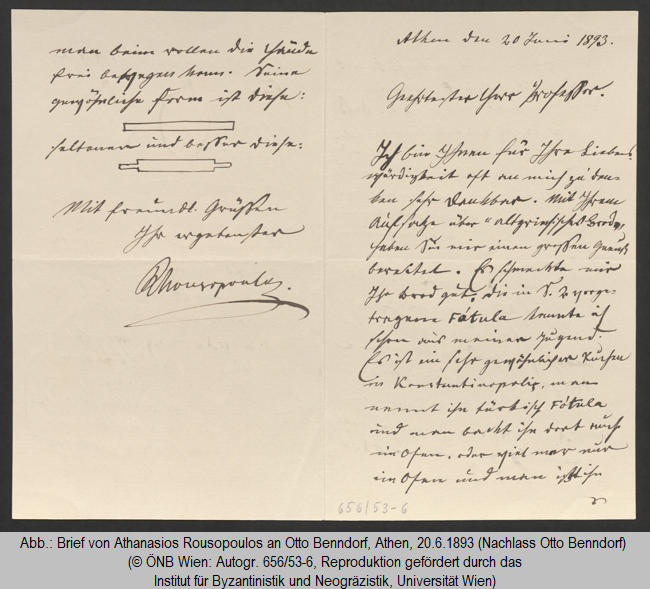 Athen den 20 Juni 1893.
Geehrtester Herr Professor.
Ich bin Ihnen für Ihre Liebens
würdigkeit oft an mich zu den
ken sehr dankbar. Mit Ihrem
Aufsatze über "altgriechisches Brod"
haben Sie mir einen grossen Genuss
bereitet. Es schmeckte mir
Ihr Brod gut, die in S. 2 vorge
tragene Fótula kannte ich
schon aus meiner Jugend.
Es ist ein sehr gewöhnlicher Kuchen
in Konstantinopolis, man
nennt ihn türkisch Fótula
und man backt ihn dort auch
im Ofen, oder viel mer nur
im Ofen und man isst ihn
656/53-6
man beim rollen die Hände
frei bewegen kann. Seine
gewöhnliche Form ist diese:
seltenere und besser diese:
Mit freundl. Grüssen
Ihr ergebenster
ARousopoulos.
Abb.: Brief von Athanasios Rousopoulos an Otto Benndorf, Athen, 20.6.1893 (Nachlass Otto Benndorf)
(© ÖNB Wien: Autogr. 656/53-6, Reproduktion gefördert durch das
Institut für Byzantinistik und Neogräzistik, Universität Wien)